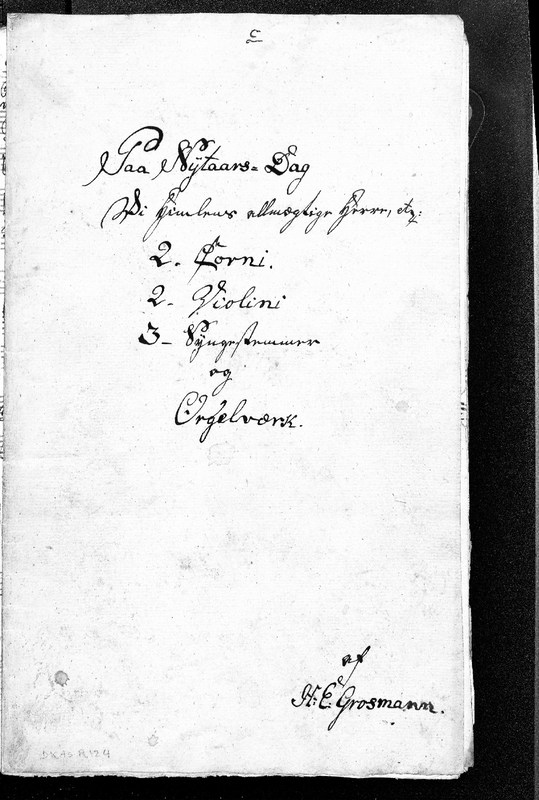 C
Paa Nytaars=Dag
Vi Himlens allmægtige Herre, etz:
2. Corni.
2. Violini
3 - Syngestemmer
og
Orgelværk.
af
H: E. Grosmann.
DK As R 124